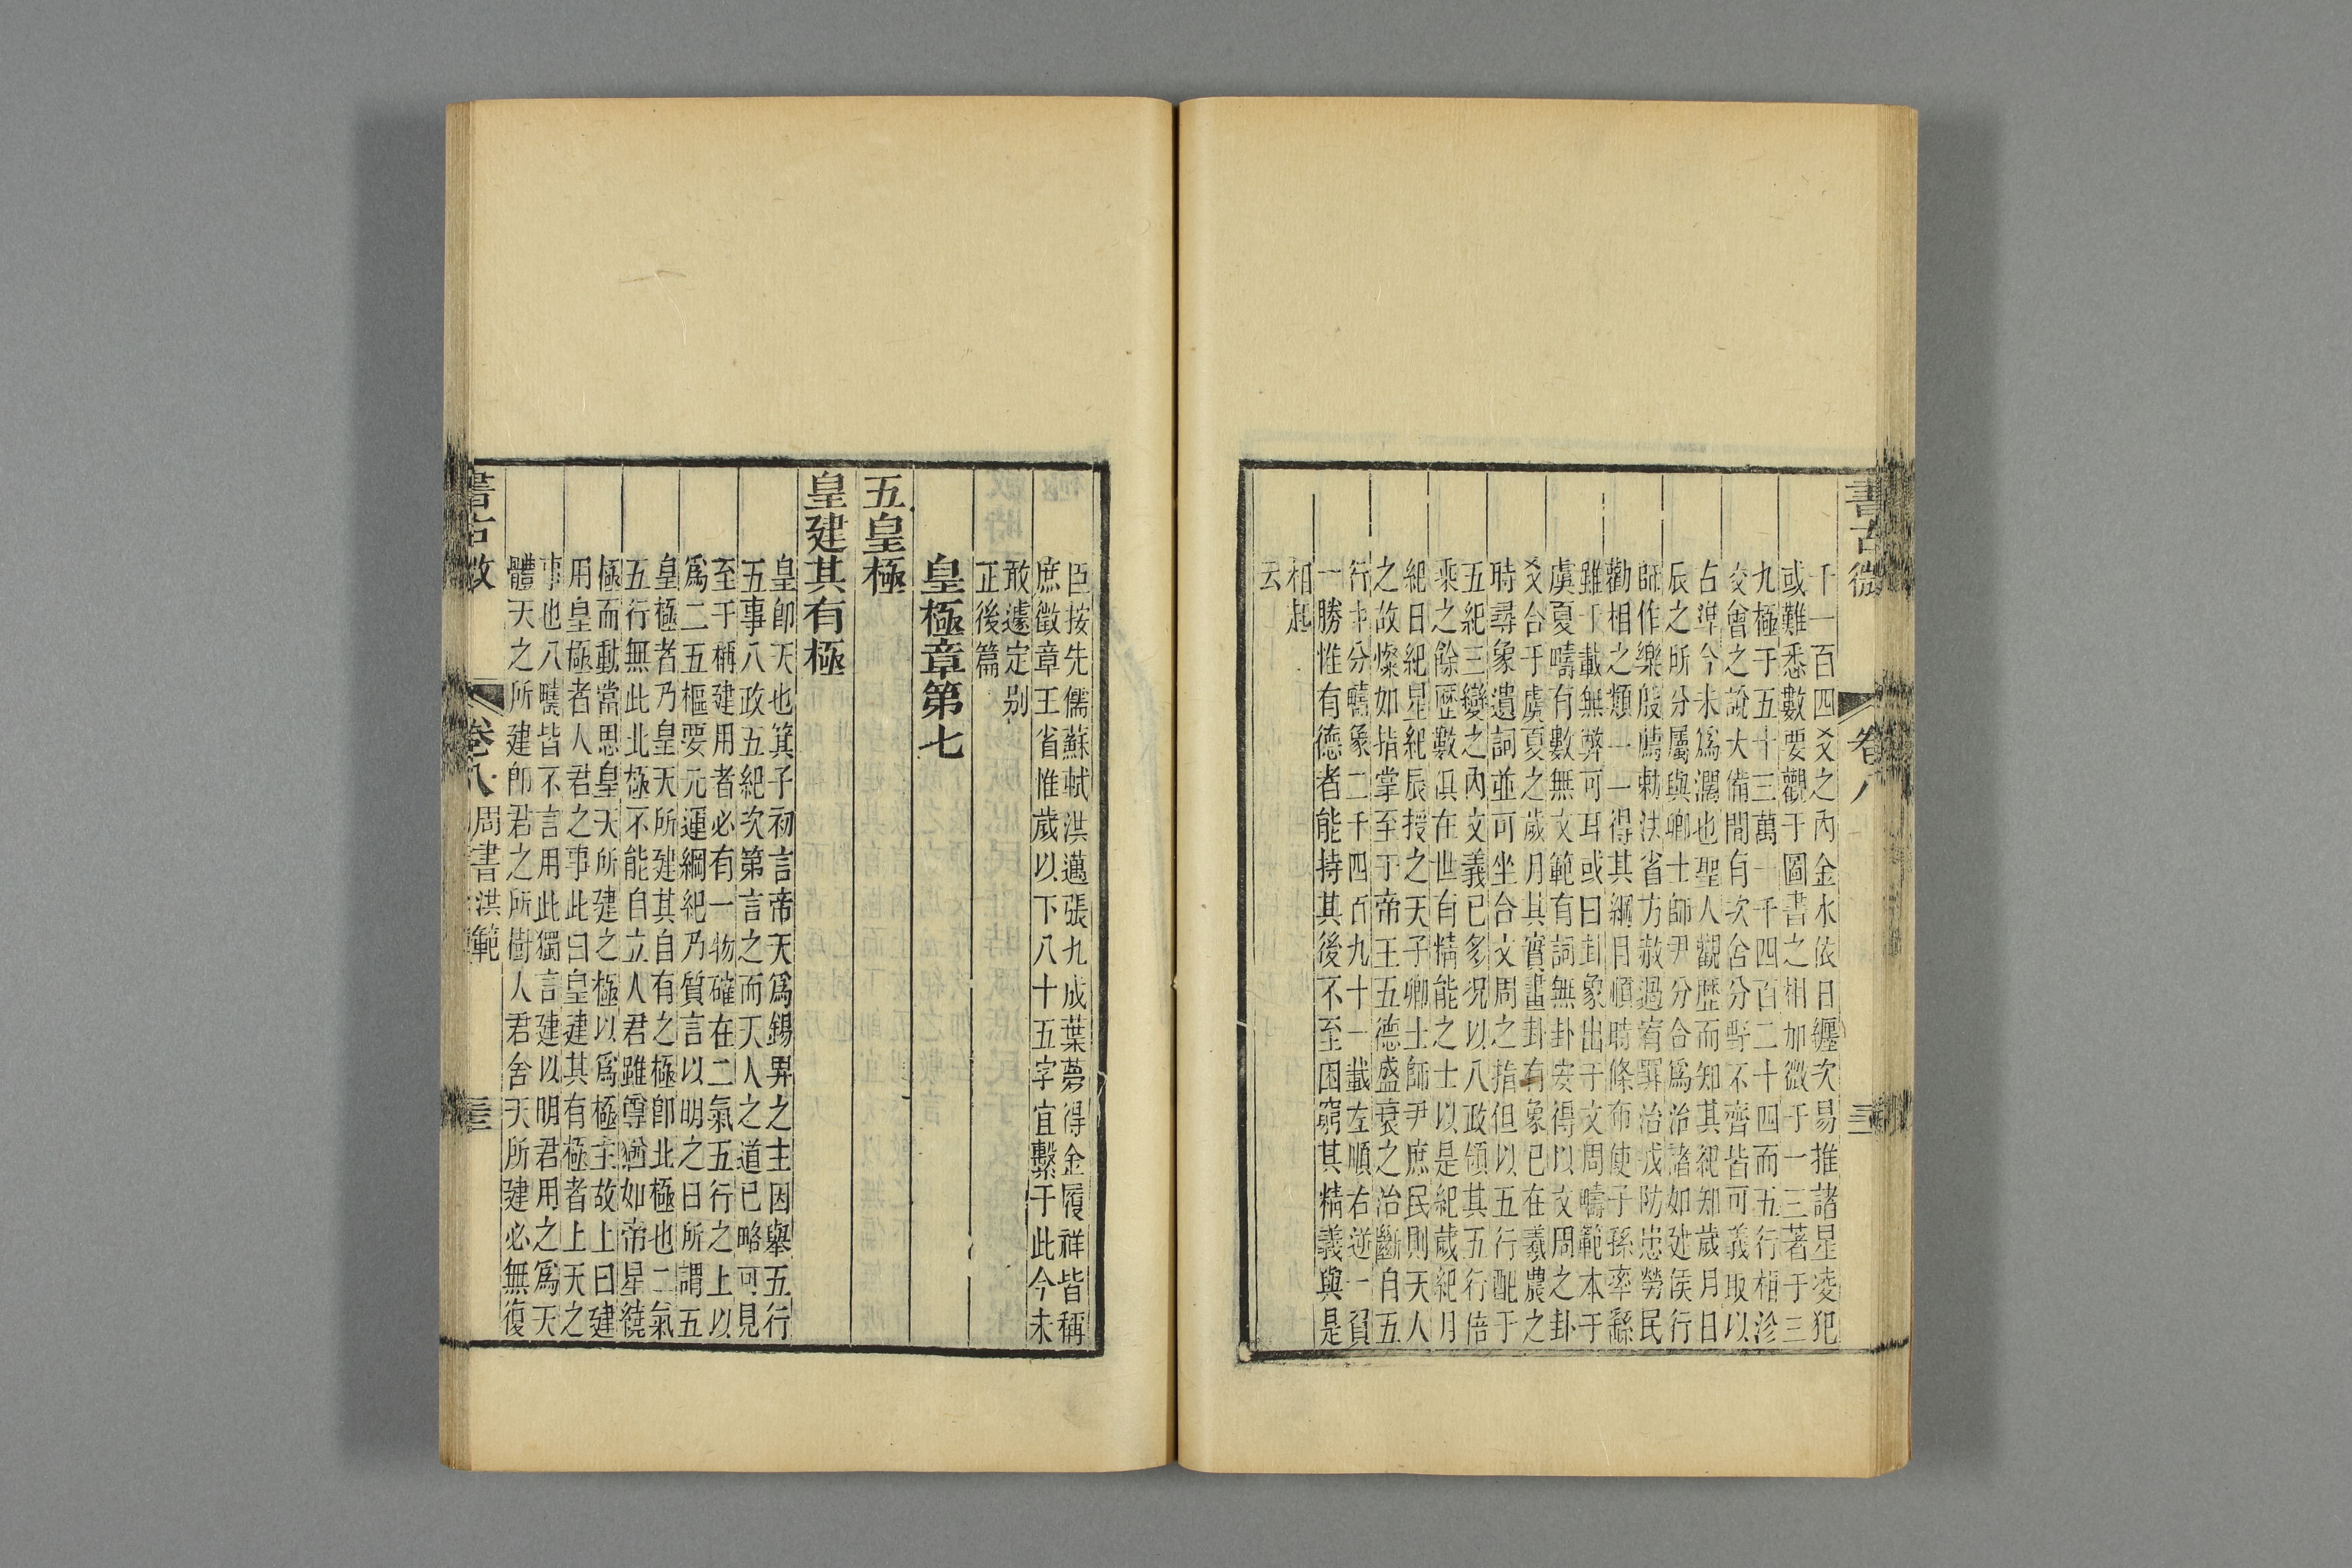 書古微
卷八
千一百四爻之內金水依日纏次易推諸星凌犯
或難悉數要觀于圖書之相加微于一三著于三
九極于五十三萬一千四百二十四而五行相沴
交會之說大備閒有次舍分野不齊皆可義取以
占準今未爲濶也聖人觀歷而知其祀知歲月日
辰之所分屬與卿士師尹分合爲治諸如建侯行
師作樂殷薦勅法省方赦過宥罪治戎防患勞民
勸相之類一一得其綱目順時條布使子孫率繇
雖千載無弊可耳或曰卦象出于文周疇範本于
虞夏疇有數無文範有詞無卦安得以文周之卦
爻合于虞夏之歲月其實畫卦有象已在羲農之
時尋象遺詞並可坐合文周之指但以五行配于
五紀三變之內文義已多况以八政領其五行倍
乘之餘歷數俱在世有精能之士以是紀歲紀月
紀日紀星紀辰授之天子卿士師尹庶民則天人
之故燦如指掌至于帝王五德盛衰之治斷自五
行中分疇象二千四百九十一載左順右逆一貟
一勝惟有德者能持其後不至困窮其精義與是
相起
云
臣按先儒蘇軾洪邁張九成葉夢得金履祥皆稱
庶徵章王省惟歲以下八十五字宜繫于此今未
敢遽定别
正後篇
皇極章第七
五皇極
皇建其有極
皇卽天也箕子初言帝天爲錫畀之主因舉五行
五事八政五紀次第言之而天人之道已略可見
至于稱建用者必有一物確在二氣五行之上以
爲二五樞要元運綱紀乃質言以明之曰所謂五
皇極者乃皇天所建其自有之極卽北極也二氣
五行無此北極不能自立人君雖尊猶如帝星徺
極而動當思皇天所建之極以爲極主故上曰建
用皇極者人君之事此曰皇建其有極者上天之
事也八疇皆不言用此獨言建以明君用之爲天
體天之所建卽君之所樹人君舍天所建必無復
書古微
卷八
周書洪範